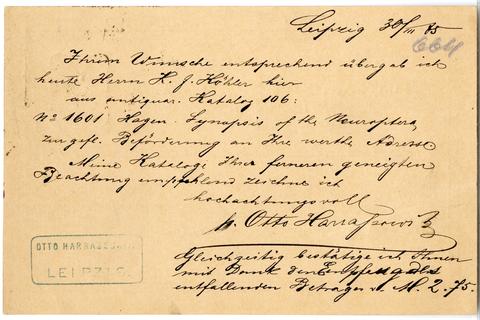 Leipzig 30/III 85
664
Ihrem Wunsche entsprechend übergab ich
heute Herrn K. F. Köhler hier
aus antiquar. Katalog 106:
No 1601 Hagen. Synopsis of the Neuroptera,
zur gefl. Beförderung an Ihre werthe Adresse
Meine Kataloge Ihrer ferneren geneigten
Beachtung empfehlend zeichne ich
hochachtungsvoll
Otto Harrassowitz
OTTO HARRASSOWITZ
LEIPZIG.
Gleichzeitig bestätige ich Ihnen
mit Dank den Empfang des
entfallenden Betrages v. M. 2.75.